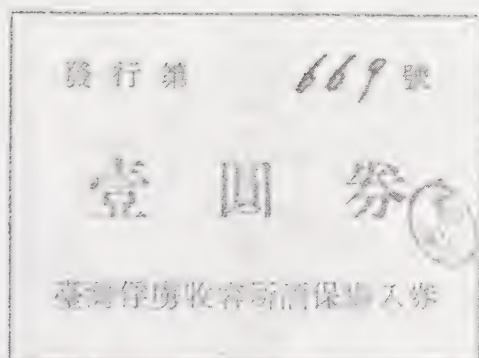 發行第 669 號
壹圓券
臺灣俘虜收容所酒保購入券